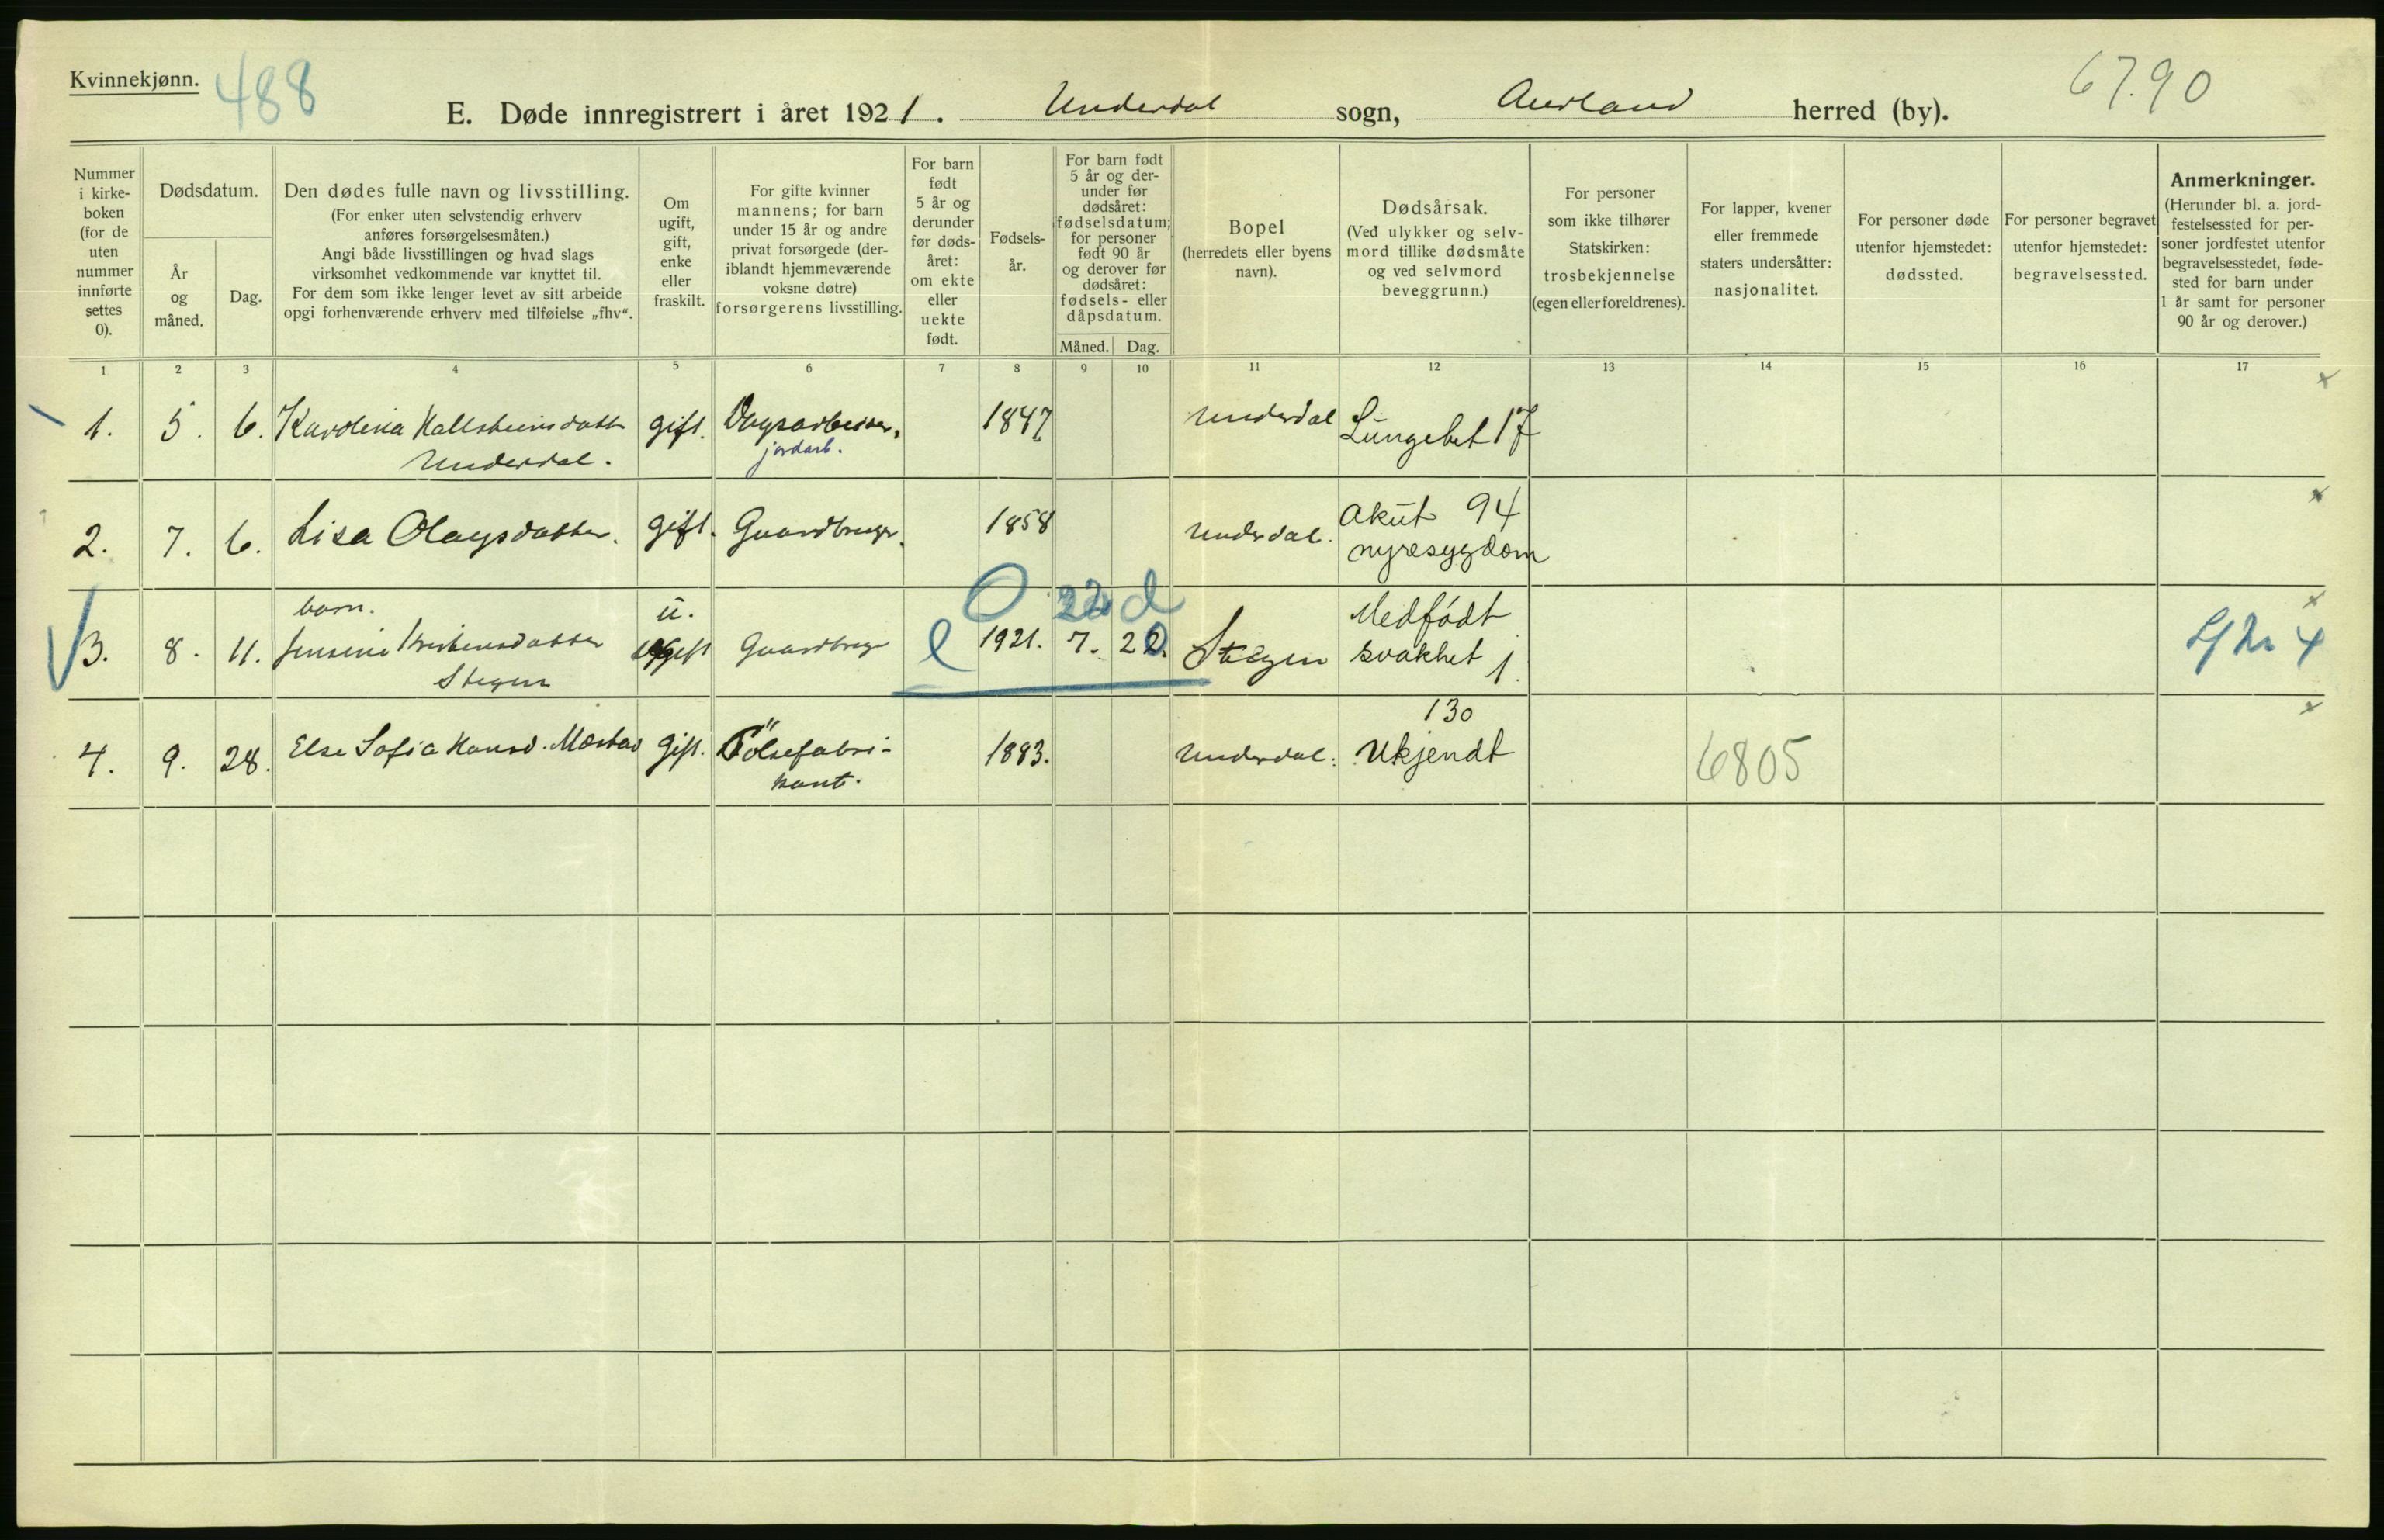 Kvinnekjønn.
488
E. Døde innregistrert i året 1921. Underdal sogn, Aurland herred (by).
6790
Nummer i kirkeboken (for de uten nummer innførte settes 0).
Dødsdatum.
År og måned.
Dag.
Den dødes fulle navn og livsstilling.
(For enker uten selvstendig erhverv
anføres forsørgelsesmåten.)
Angi både livsstillingen og hvad slags
virksomhet vedkommende var knyttet til.
For dem som ikke lenger levet av sitt arbeide
opgi forhenværende erhverv med tilføielse „fhv“.
Om
ugift,
gift,
enke
eller
fraskilt.
For gifte kvinner
mannens; for barn
under 15 år og andre
privat forsørgede (der-
iblandt hjemmeværende
voksne døtre)
forsørgerens livsstilling.
For barn
født
5 år og
derunder
før døds-
året:
om ekte
eller
uekte
født.
Fødsels-
år.
For barn født
5 år og der-
under før
dødsåret:
fødselsdatum;
for personer
født 90 år
og derover før
dødsåret:
fødsels- eller
dåpsdatum.
Måned. Dag.
Bopel
(herredets eller byens
navn).
Dødsårsak.
(Ved ulykker og selv-
mord tillike dødsmåte
og ved selvmord
beveggrunn.)
For personer
som ikke tilhører
Statskirken:
trosbekjennelse
(egen eller foreldrenes).
For lapper, kvener
eller fremmede
staters undersåtter:
nasjonalitet.
For personer døde
utenfor hjemstedet:
dødssted.
For personer begravet
utenfor hjemstedet:
begravelsessted.
Anmerkninger.
(Herunder bl. a. jord-
festelsessted for per-
soner jordfestet utenfor
begravelsesstedet, føde-
sted for barn under
1 år samt for personer
90 år og derover.)
1 2 3 4 5 6 7 8 9 10 11 12 13 14 15 16 17
1. 5. 6. Karolina Hallsteinsdatt gift. Dagsarbeider, 1847 Underdal Lungebet 17 x
Underdal. jordarb.
2. 7. 6. Lisa Olaysdatter. gift. Gaardbruger. 1858 Underdal. Akut 94 x
nyresygdom
barn. u. 0 22 d Medfödt x
3. 8. 11. Jensine ugift Gaardbruge e 1921. 7. 20. Stegen svakhet 1. 4
Stegen
130 x
4. 9. 28. Else Sofia Hansd. gift. Pölsefabri- 1883. Underdal. Ukjendt 6805
kant.